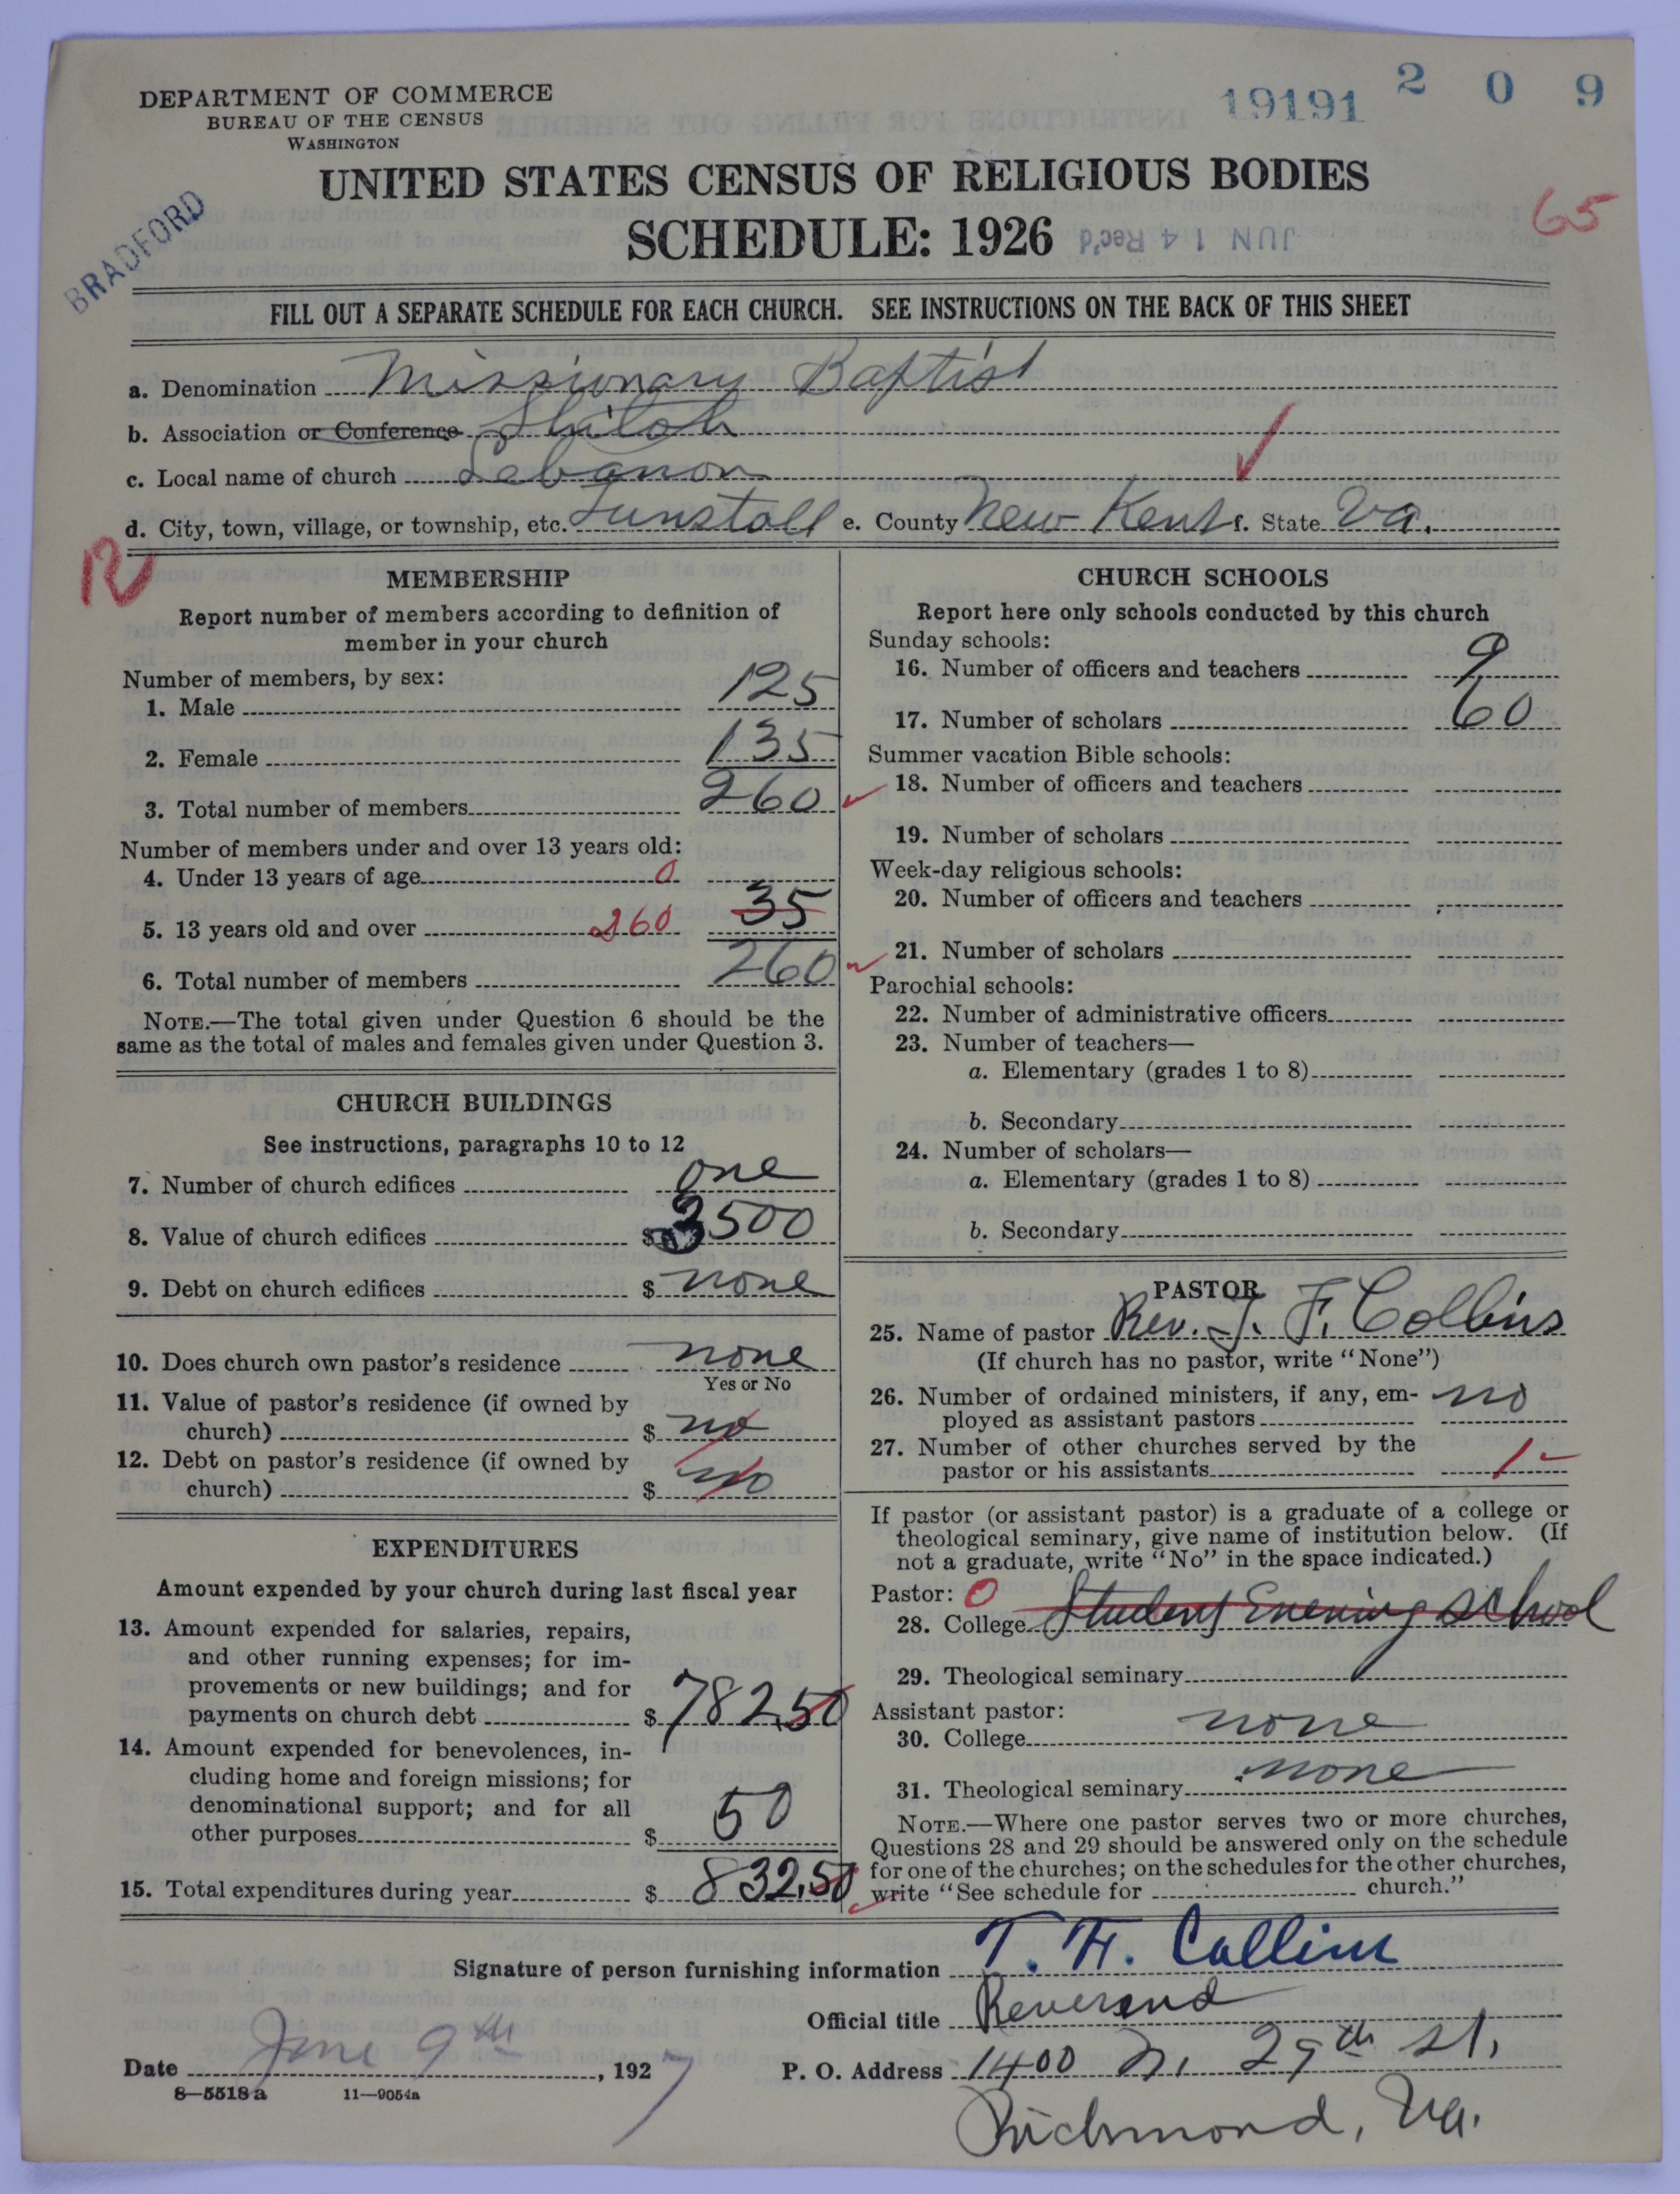 19191 2 0 9
DEPARTMENT OF COMMERCE
BUREAU OF THE CENSUS
WASHINGTON
UNITED STATES CENSUS OF RELIGIOUS BODIES
SCHEDULE: 1926
JUN 14 Rec'd
65
BRADFORD
FILL OUT A SEPARATE SCHEDULE FOR EACH CHURCH. SEE INSTRUCTIONS ON THE BACK OF THIS SHEET
a. Denomination Missionary Baptist
b. Association or Conference Shiloh
c. Local name of church Lebanon
d. City, town, village, or township, etc. Tunstall e. County New Kent f. State Va.
12
MEMBERSHIP
Report number of members according to definition of
member in your church
Number of members, by sex:
1. Male 125
2. Female 135
3. Total number of members 260
Number of members under and over 13 years old:
4. Under 13 years of age 0
5. 13 years old and over 260 35
6. Total number of members 260
NOTE.—The total given under Question 6 should be the
same as the total of males and females given under Question 3.
CHURCH BUILDINGS
See instructions, paragraphs 10 to 12
7. Number of church edifices one
8. Value of church edifices $ 3500
9. Debt on church edifices $ none
10. Does church own pastor's residence none
Yes or No
11. Value of pastor's residence (if owned by
church) $ no
12. Debt on pastor's residence (if owned by
church) $ no
EXPENDITURES
Amount expended by your church during last fiscal year
13. Amount expended for salaries, repairs,
and other running expenses; for im-
provements or new buildings; and for
payments on church debt $ 782.50
14. Amount expended for benevolences, in-
cluding home and foreign missions; for
denominational support; and for all
other purposes $ 50
15. Total expenditures during year $ 832.50
CHURCH SCHOOLS
Report here only schools conducted by this church
Sunday schools:
16. Number of officers and teachers 9
17. Number of scholars 60
Summer vacation Bible schools:
18. Number of officers and teachers
19. Number of scholars
Week-day religious schools:
20. Number of officers and teachers
21. Number of scholars
Parochial schools:
22. Number of administrative officers
23. Number of teachers—
a. Elementary (grades 1 to 8)
b. Secondary
24. Number of scholars—
a. Elementary (grades 1 to 8)
b. Secondary
PASTOR
25. Name of pastor Rev. T. F. Collins
(If church has no pastor, write "None")
26. Number of ordained ministers, if any, em-
ployed as assistant pastors no
27. Number of other churches served by the
pastor or his assistants 1-
If pastor (or assistant pastor) is a graduate of a college or
theological seminary, give name of institution below. (If
not a graduate, write "No" in the space indicated.)
Pastor: 0
28. College Student Evening School
29. Theological seminary
Assistant pastor:
30. College none
31. Theological seminary none
NOTE.—Where one pastor serves two or more churches,
Questions 28 and 29 should be answered only on the schedule
for one of the churches; on the schedules for the other churches,
write "See schedule for church."
Signature of person furnishing information T. F. Collins
Official title Reverend
Date June 9th, 1927 P. O. Address 1400 N. 29th St.
8—5518 a 11—9054a
Richmond, Va.